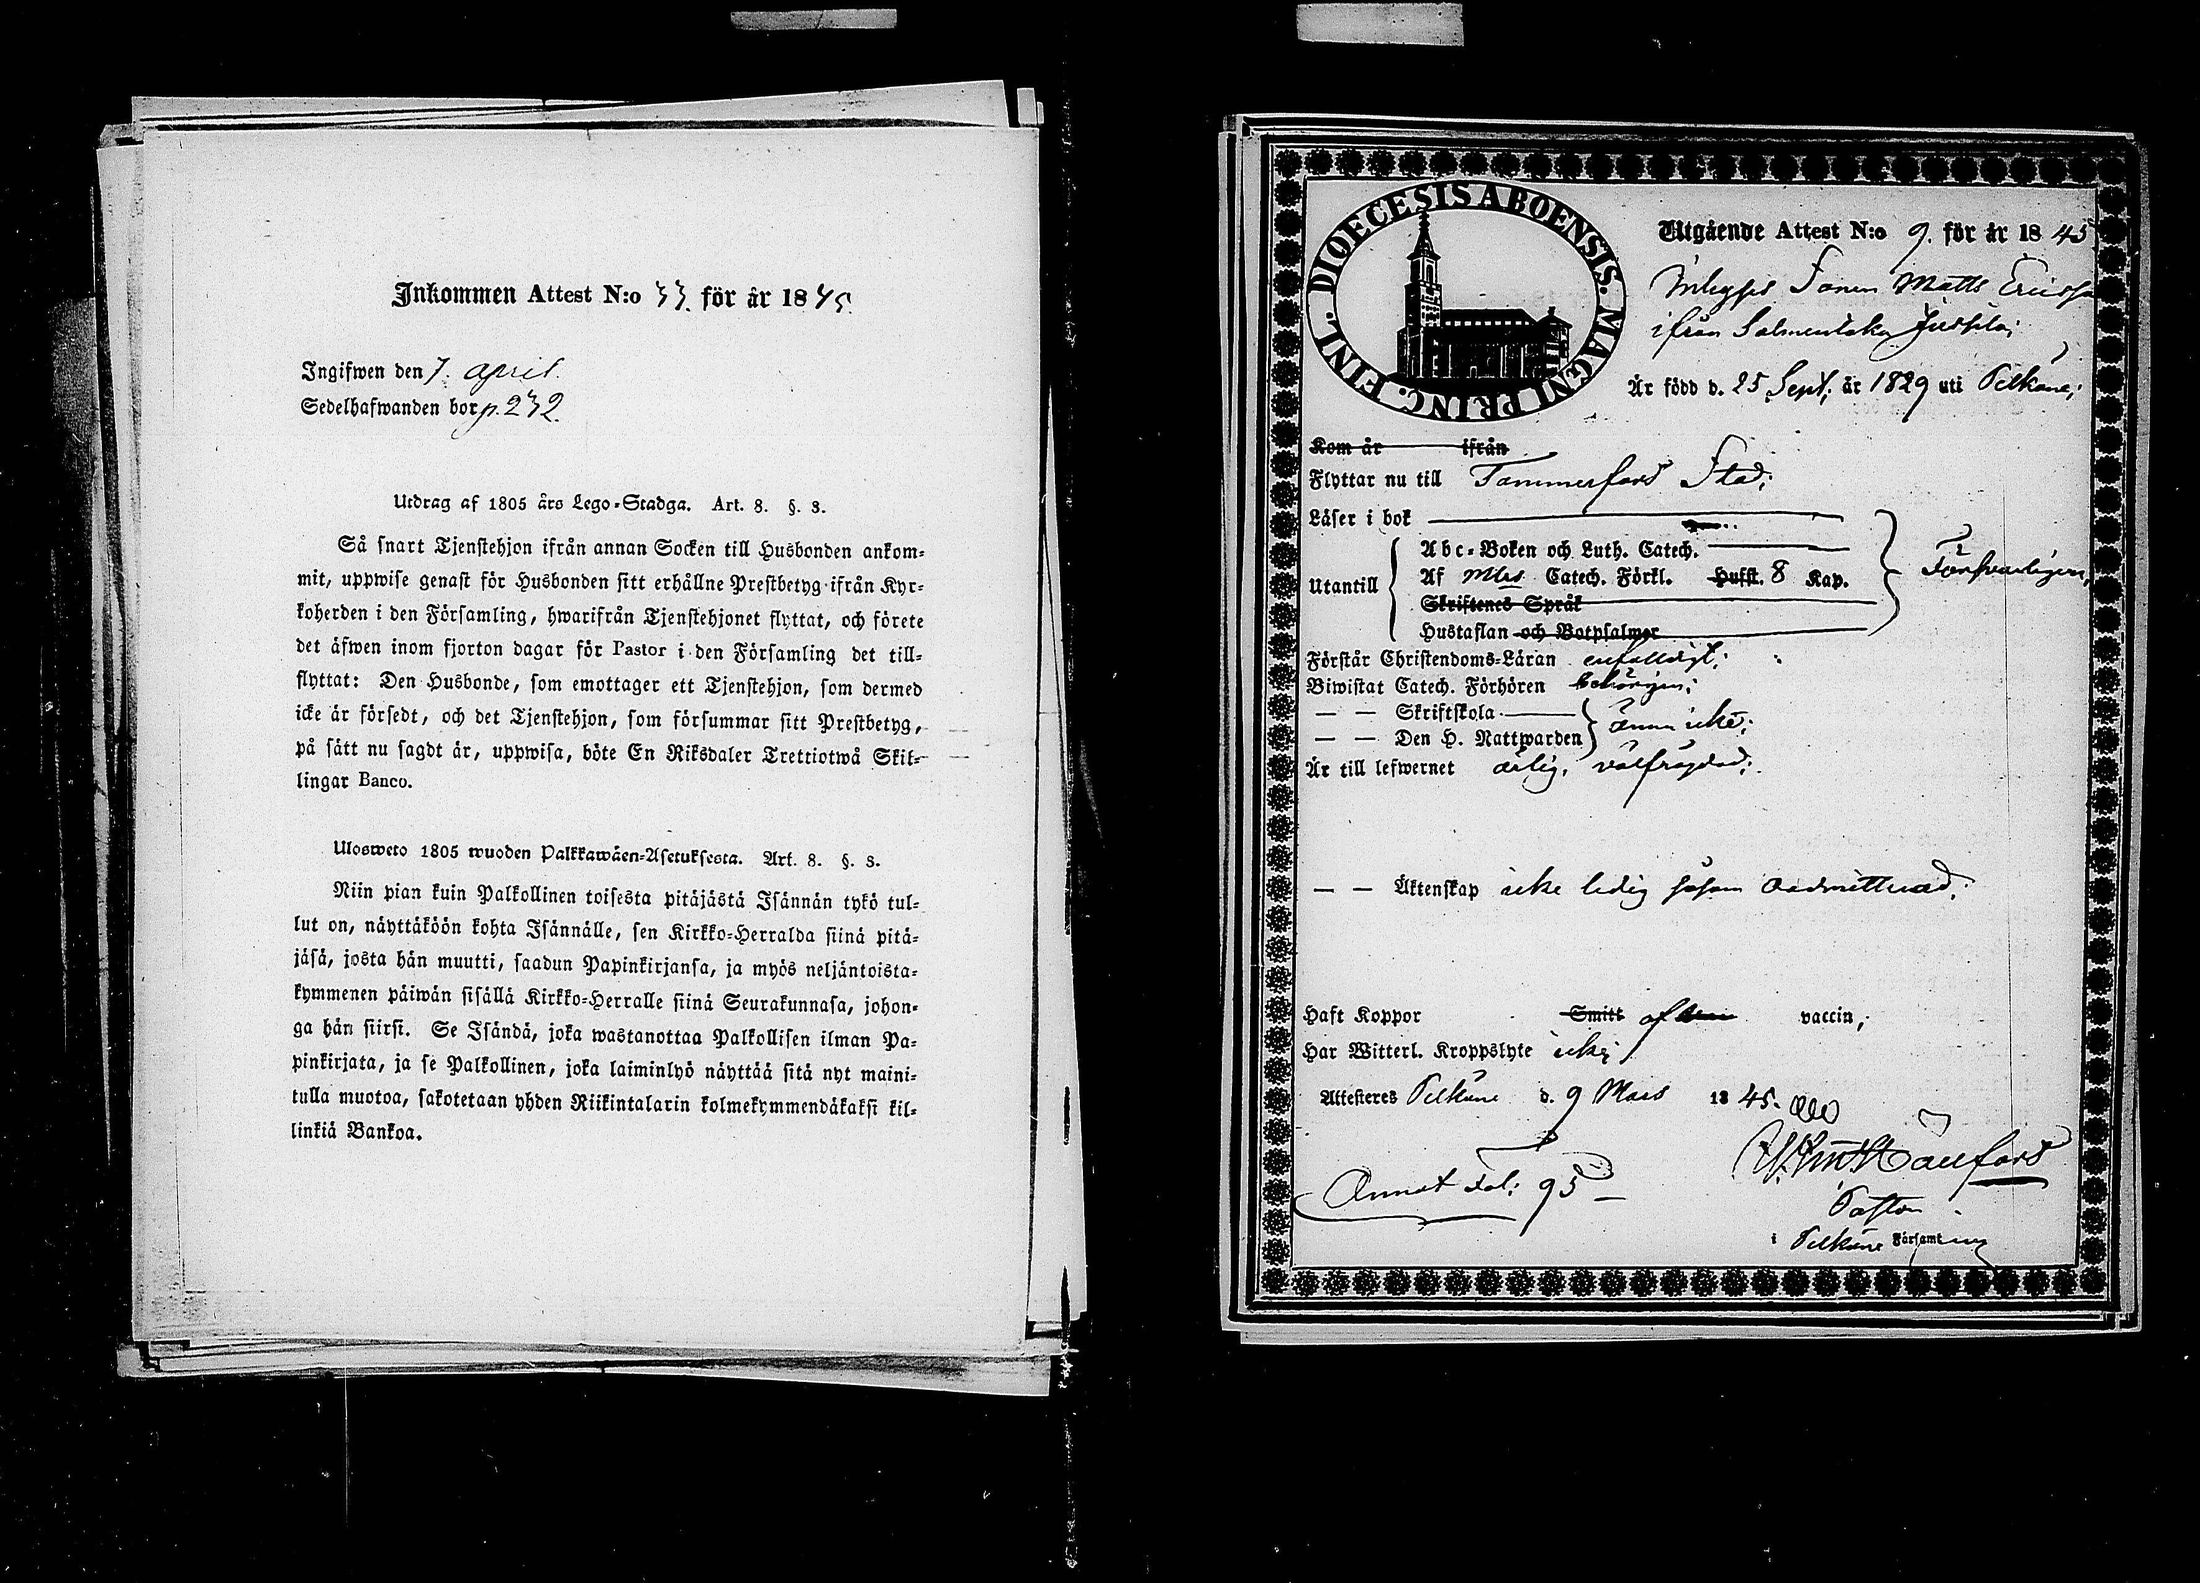 Inkommen Attest N:o 33. för år 1845.
Ingifwen den 7. april.
Sedelhafwanden bor p. 232.
Utdrag af 1805 års Lego-Stadga. Art. 8. §. 8.
Så snart Tjenstehjon ifrån annan Socken till Husbonden ankom-
mit, uppwise genast för Husbonden sitt erhållne Prestbetyg ifrån Kyr-
koherden i den Församling, hwarifrån Tjenstehjonet flyttat, och förete
det äfwen inom fjorton dagar för Pastor i den Församling det till-
flyttat: Den Husbonde, som emottager ett Tjenstehjon, som dermed
icke är försedt, och det Tjenstehjon, som försummar sitt Prestbetyg,
på sätt nu sagdt är, uppwisa, böte En Riksdaler Trettiotwå Skil-
lingar Banco.
Ulosweto 1805 wuoden Palkkawäen-Asetuksesta. Art. 8. §. 8.
Niin pian kuin Palkollinen toisesta pitäjästä Isännän tykö tul-
lut on, näyttäköön kohta Isännälle, sen Kirkko-Herralda siinä pitä-
jäsä, josta hän muutti, saadun Papinkirjansa, ja myös neljäntoista-
kymmenen päiwän sisällä Kirkko-Herralle siinä Seurakunnasa, johon-
ga hän siirsi. Se Isändä, joka wastanottaa Palkollisen ilman Pa-
pinkirjata, ja se Palkollinen, joka laiminlyö näyttää sitä nyt maini-
tulla muotoa, sakotetaan yhden Riikintalarin kolmekymmendäkaksi kil-
linkiä Bankoa.
DIOECESIS ABOENSIS. MAGNI PRINC. FINL.
Utgående Attest N:o 9. för år 1845
Inhyses Sonen Matts Ericsson
ifrån Salmentaka
Är född d. 25 Sept. år 1829 uti Pelkäne;
Kom år ifrån
Flyttar nu till Tammerfors Stad;
Läser i bok
Utantill
Abc-Boken och Luth. Catech.
Af Catech. Förkl. Hufst. 8 Kap.
Skriftenes Språk
Hustaflan och Botpsalmer
Försvarligen,
Förstår Christendoms-Läran enfaldigt;
Biwistat Catech. Förhören behörigen;
— — Skriftskola
— — Den H. Nattwarden
ännu icke;
Är till lefwernet ärlig, välfrägdad;
— — Äktenskap icke ledig såsom oadmitterad;
Haft Koppor Smitt af vaccin;
Har Witterl. Kroppslyte icke;
Attesteres Pelkäne d. 9 Mars 1845.
Annot Fol: 95
Pastor
i Pelkäne Församling